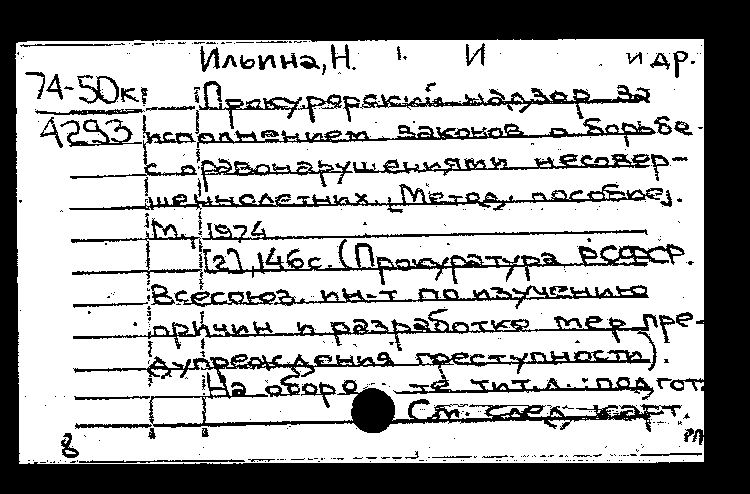 Ильина, Н. И. и др.
74-50к Прокурорский надзор за
4293 исполнением законов о борьбе
с правонарушениями несовер-
шеннолетних. [Метод. пособие].
М., 1974
[2], 146 с. (Прокуратура РСФСР.
Всесоюз. ин-т по изучению
причин и разработке мер пре-
дупреждения преступности).
На оборо те тит.л.: подгот
См. след. карт.
8